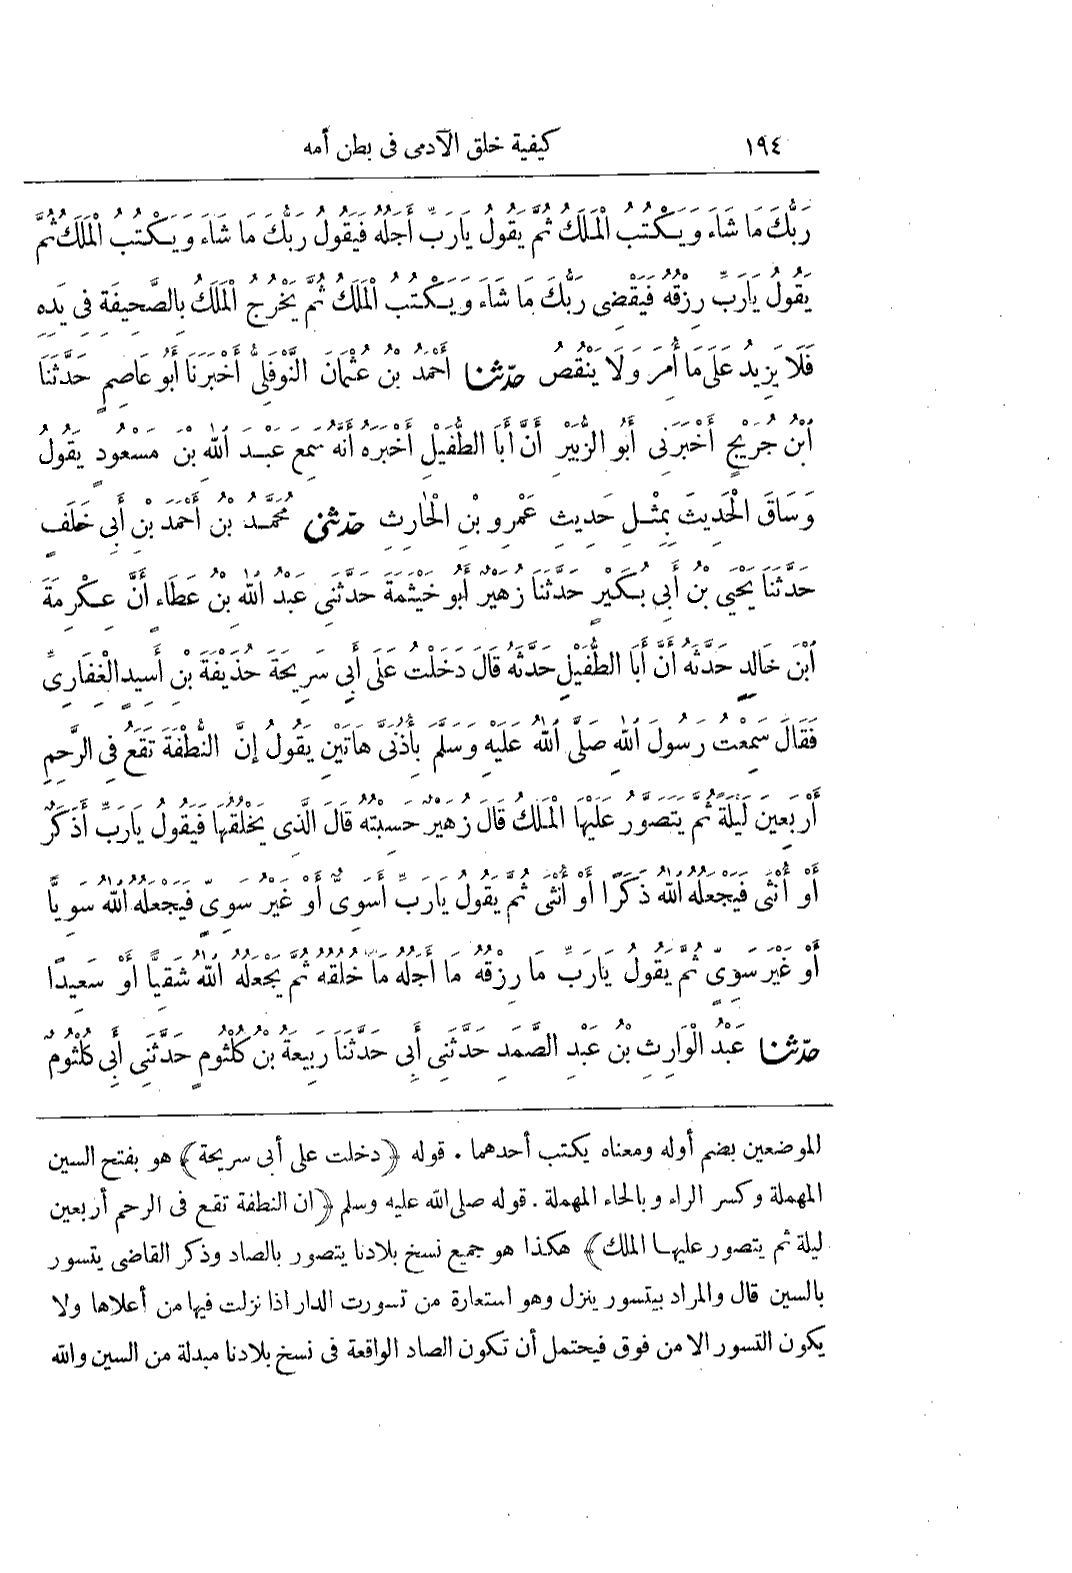 ١٩٤ كيفية خلق الآدمى فى بطن أمه
رَبُّكَ مَا شَاءَ وَيَكْتُبُ الْمَلَكُ ثُمَّ يَقُولُ يَارَبِّ أَجَلُهُ فَيَقُولُ رَبُّكَ مَا شَاءَ وَيَكْتُبُ الْمَلَكُ ثُمَّ
يَقُولُ يَارَبِّ رِزْقُهُ فَيَقْضِى رَبُّكَ مَا شَاءَ وَيَكْتُبُ الْمَلَكُ ثُمَّ يَخْرُجُ الْمَلَكُ بِالصَّحِيفَةِ فِى يَدِهِ
فَلَا يَزِيدُ عَلَى مَا أُمِرَ وَلَا يَنْقُصُ حدّثنا أَحْمَدُ بْنُ عُثْمَانَ النَّوْفَلِىُّ أَخْبَرَنَا أَبُو عَاصِمٍ حَدَّثَنَا
ابْنُ جُرَيْجٍ أَخْبَرَنِى أَبُو الزُّبَيْرِ أَنَّ أَبَا الطُّفَيْلِ أَخْبَرَهُ أَنَّهُ سَمِعَ عَبْدَ اللهِ بْنَ مَسْعُودٍ يَقُولُ
وَسَاقَ الْحَدِيثَ بِمِثْلِ حَدِيثِ عَمْرِو بْنِ الْحَارِثِ حدّثنى مُحَمَّدُ بْنُ أَحْمَدَ بْنِ أَبِى خَلَفٍ
حَدَّثَنَا يَحْيَى بْنُ أَبِى بُكَيْرٍ حَدَّثَنَا زُهَيْرٌ أَبُو خَيْثَمَةَ حَدَّثَنِى عَبْدُ اللهِ بْنُ عَطَاءٍ أَنَّ عِكْرِمَةَ
ابْنَ خَالِدٍ حَدَّثَهُ أَنَّ أَبَا الطُّفَيْلِ حَدَّثَهُ قَالَ دَخَلْتُ عَلَى أَبِى سَرِيحَةَ حُذَيْفَةَ بْنِ أَسِيدٍ الْغِفَارِىِّ
فَقَالَ سَمِعْتُ رَسُولَ اللهِ صَلَّى اللهُ عَلَيْهِ وَسَلَّمَ بِأُذُنَىَّ هَاتَيْنِ يَقُولُ إِنَّ النُّطْفَةَ تَقَعُ فِى الرَّحِمِ
أَرْبَعِينَ لَيْلَةً ثُمَّ يَتَصَوَّرُ عَلَيْهَا الْمَلَكُ قَالَ زُهَيْرٌ حَسِبْتُهُ قَالَ الَّذِى يَخْلُقُهَا فَيَقُولُ يَارَبِّ أَذَكَرٌ
أَوْ أُنْثَى فَيَجْعَلُهُ اللهُ ذَكَرًا أَوْ أُنْثَى ثُمَّ يَقُولُ يَارَبِّ أَسَوِىٌّ أَوْ غَيْرُ سَوِىٍّ فَيَجْعَلُهُ اللهُ سَوِيًّا
أَوْ غَيْرَ سَوِىٍّ ثُمَّ يَقُولُ يَارَبِّ مَا رِزْقُهُ مَا أَجَلُهُ مَا خُلُقُهُ ثُمَّ يَجْعَلُهُ اللهُ شَقِيًّا أَوْ سَعِيدًا
حدّثنا عَبْدُ الْوَارِثِ بْنُ عَبْدِ الصَّمَدِ حَدَّثَنِى أَبِى حَدَّثَنَا رَبِيعَةُ بْنُ كُلْثُومٍ حَدَّثَنِى أَبِى كُلْثُومٌ
الموضعين بضم أوله ومعناه يكتب أحدهما . قوله ﴿دخلت على أبى سريحة﴾ هو بفتح السين
المهملة وكسر الراء وبالحاء المهملة . قوله صلى الله عليه وسلم ﴿ان النطفة تقع فى الرحم أربعين
ليلة ثم يتصور عليها الملك﴾ هكذا هو جميع نسخ بلادنا يتصور بالصاد وذكر القاضى يتسور
بالسين قال والمراد بيتسور ينزل وهو استعارة من تسورت الدار اذا نزلت فيها من أعلاها ولا
يكون التسور الا من فوق فيحتمل أن تكون الصاد الواقعة فى نسخ بلادنا مبدلة من السين والله